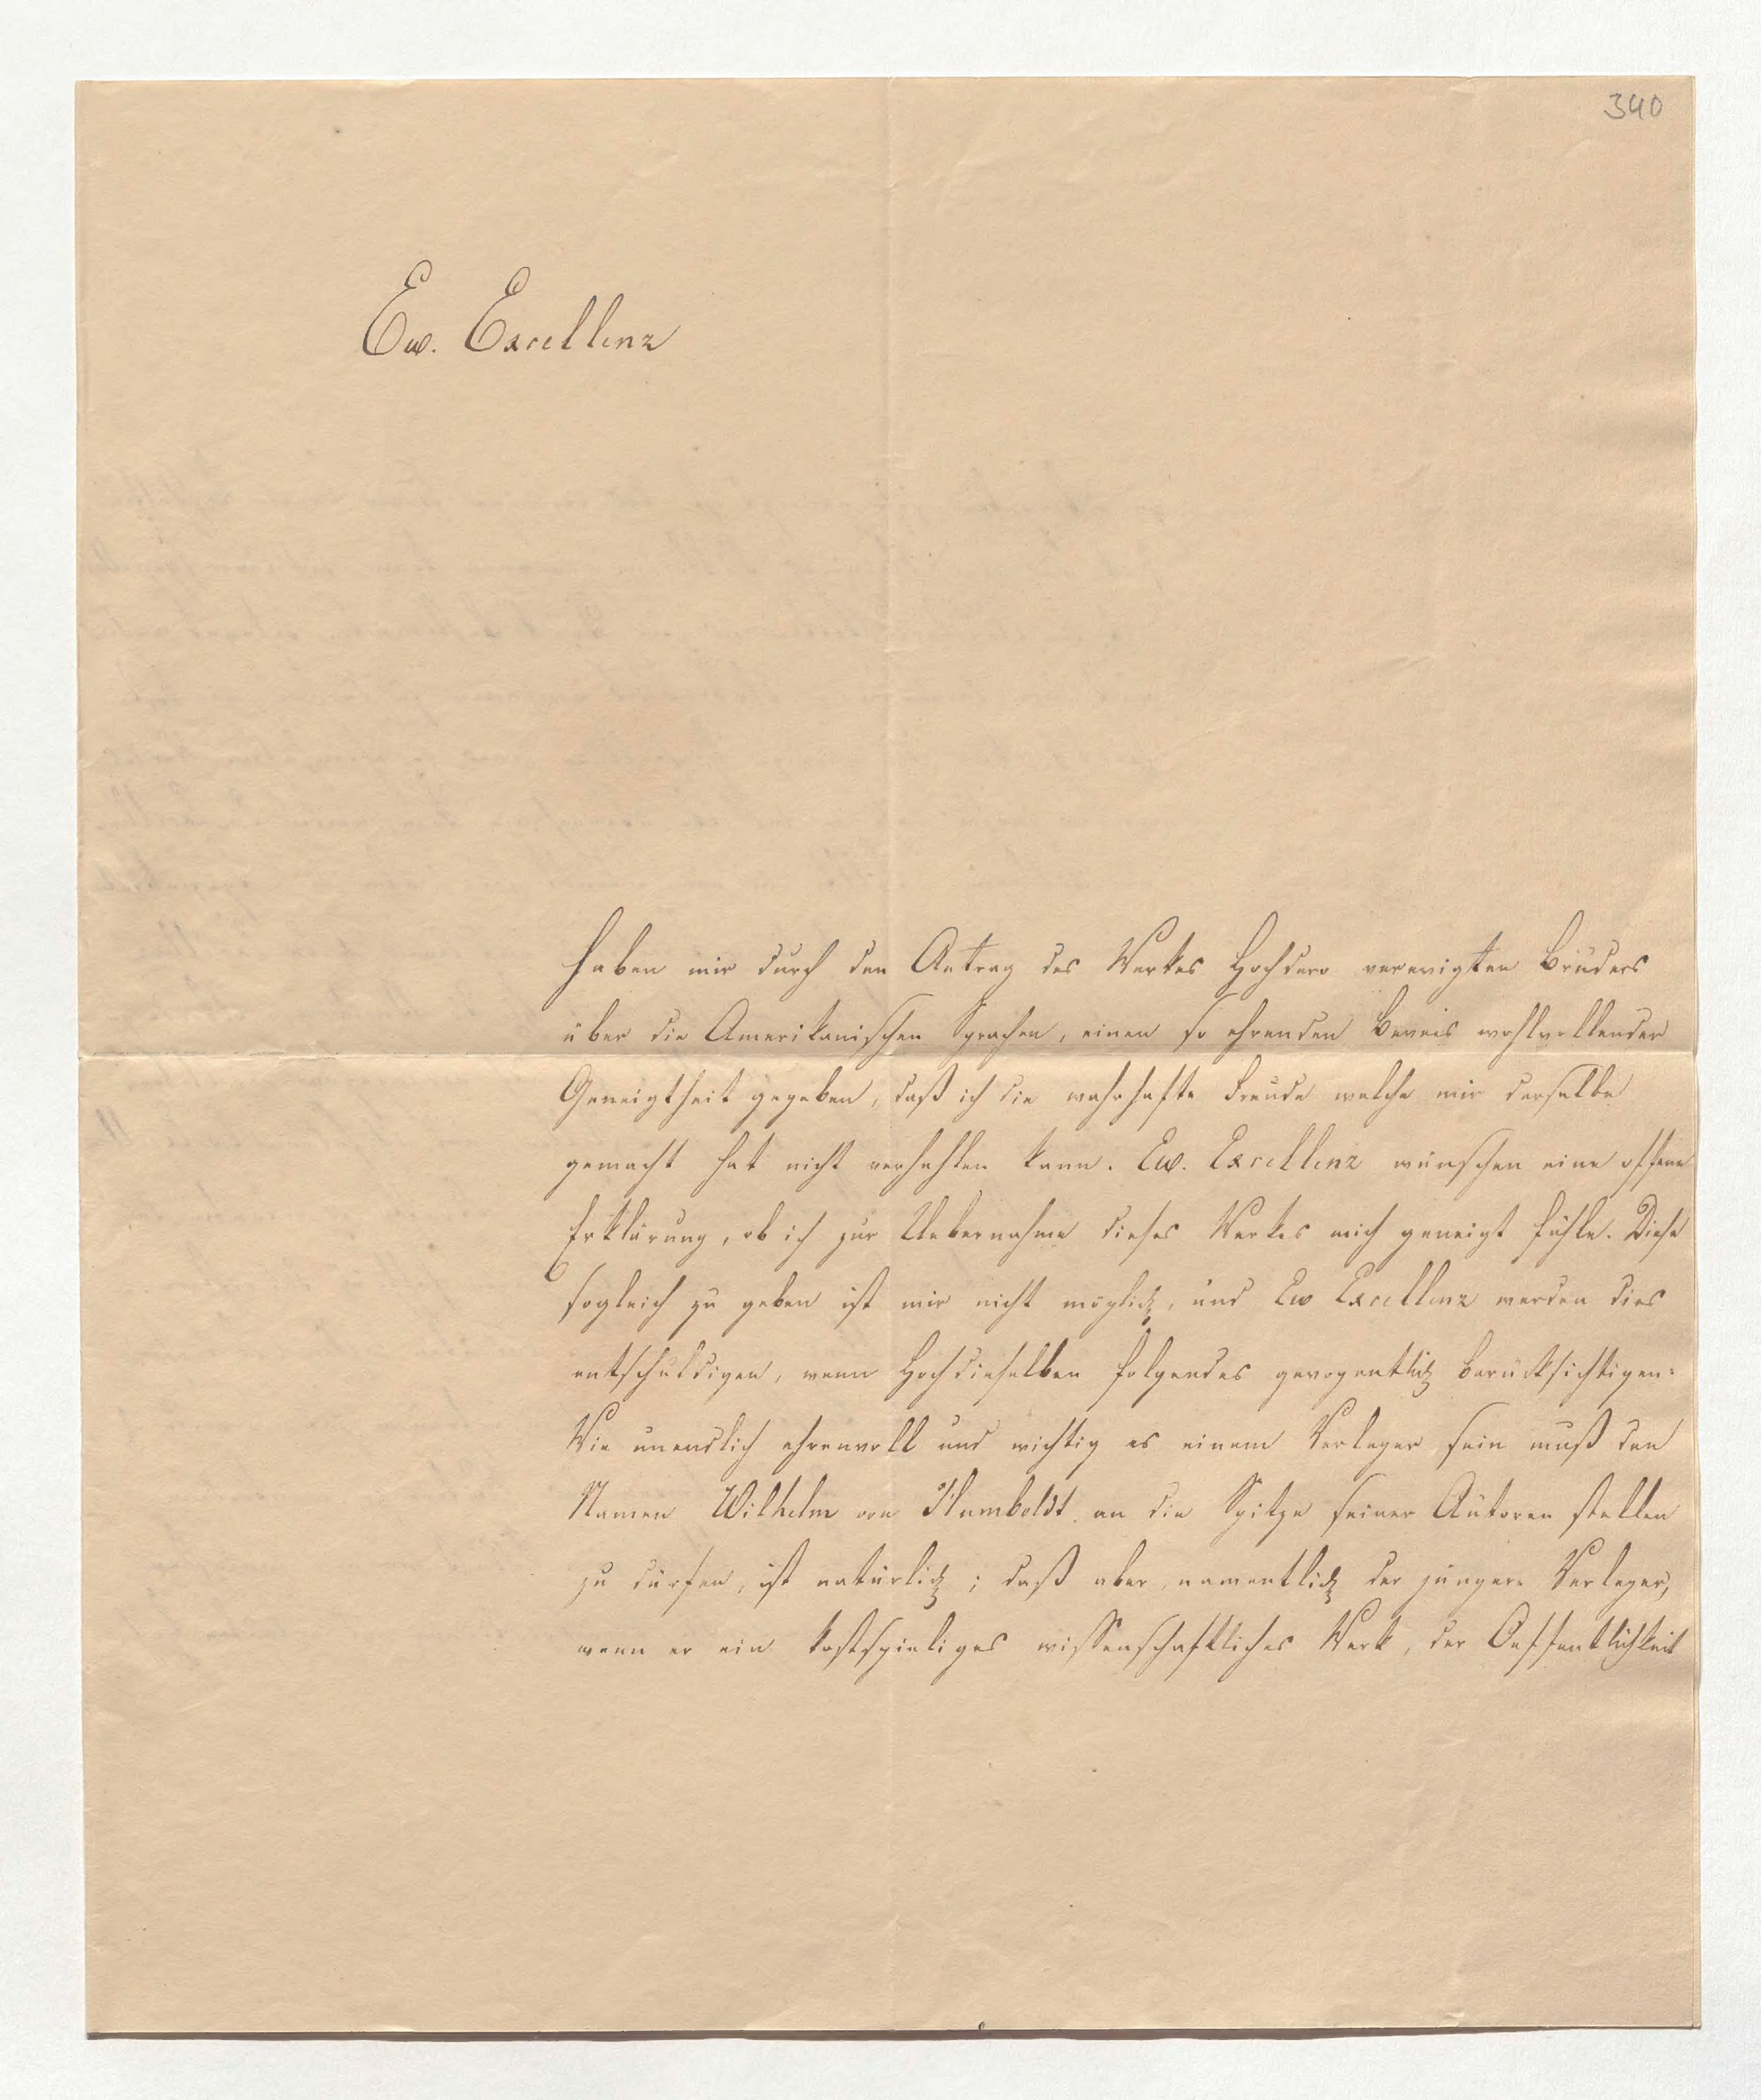 340
Ew. Excellenz
haben mir durch den Antrag des Werkes Hochdero verewigten Bruders
über die Amerikanischen Sprachen, einen so ehrenden Beweis wohlwollender
Geneigtheit gegeben, daß ich die wahrhafte Freude welche mir derselbe
gemacht hat nicht verhehlen kann. Ew. Excellenz wünschen eine offene
Erklärung, ob ich zur Uebernahme dieses Werkes mich geneigt fühle. Diese
sogleich zu geben ist mir nicht möglich, und Ew Excellenz werden dies
entschuldigen, wenn Hochdieselben folgendes gewogentlich berücksichtigen:
Wie unendlich ehrenvoll und wichtig es einem Verleger sein muß den
Namen Wilhelm von Humboldt an die Spitze seiner Autoren stellen
zu dürfen, ist natürlich; daß aber, namentlich der jüngere Verleger,
wenn er ein kostspieliges wissenschaftliches Werk, der Oeffentlichkeit